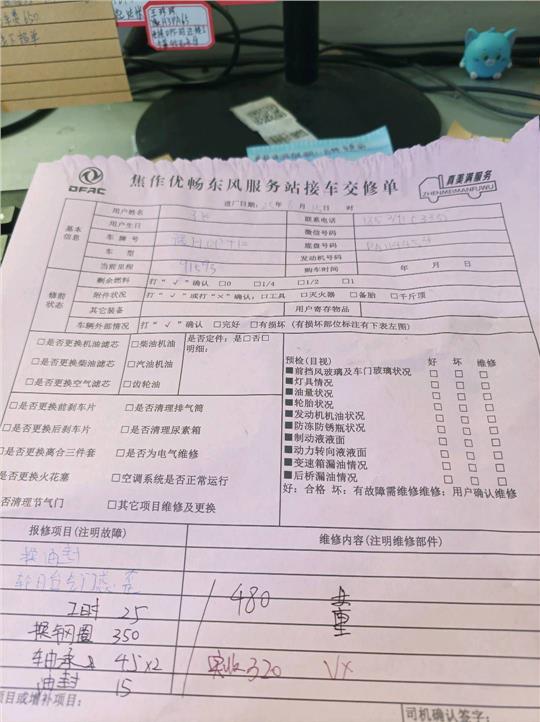 DFAC
焦作优畅东风服务站接车交修单
真美满服务
ZHENMEIMANFUWU
进厂日期: 年 月 日 时
基本信息
用户姓名
联系电话
用户生日
微信号码
车牌号
底盘号码
车型
发动机号码
当前里程 91593
购车时间 年 月 日
修前状态
剩余燃料 打“√”确认 □0 □1/4 □1/2 □1
附件状况 打“√”或打“×”确认: □工具 □灭火器 □备胎 □千斤顶
其它装备
用户寄存物品
车辆外部情况 打“√”确认 □完好 □有损坏 (有损坏部位标注有下表左图)
□是否更换机油滤芯 □柴油机油 是否定件: 是□否□
明细:
□是否更换柴油滤芯 □汽油机油
□是否更换空气滤芯 □齿轮油
预检(目视) 好 坏 维修
■前挡风玻璃及车门玻璃状况 □ □ □
■灯具情况 □ □ □
■油量状况 □ □ □
■轮胎状况 □ □ □
■发动机机油状况 □ □ □
■防冻防锈瓶状况 □ □ □
■制动液液面 □ □ □
■动力转向液液面 □ □ □
■变速箱漏油情况 □ □ □
■后桥漏油情况 □ □ □
好: 合格 坏: 有故障需维修维修: 用户确认维修
□是否更换前刹车片 □是否清理排气筒
□是否更换后刹车片 □是否清理尿素箱
□是否更换离合三件套 □是否为电气维修
是否更换火花塞 □空调系统是否正常运行
是否清理节气门 □其它项目维修及更换
报修项目(注明故障)
维修内容(注明维修部件)
工时 25
480
换钢圈 350
轴承 45×2
实收320 VX
油封 15
项目或增补项目:
司机确认签字: